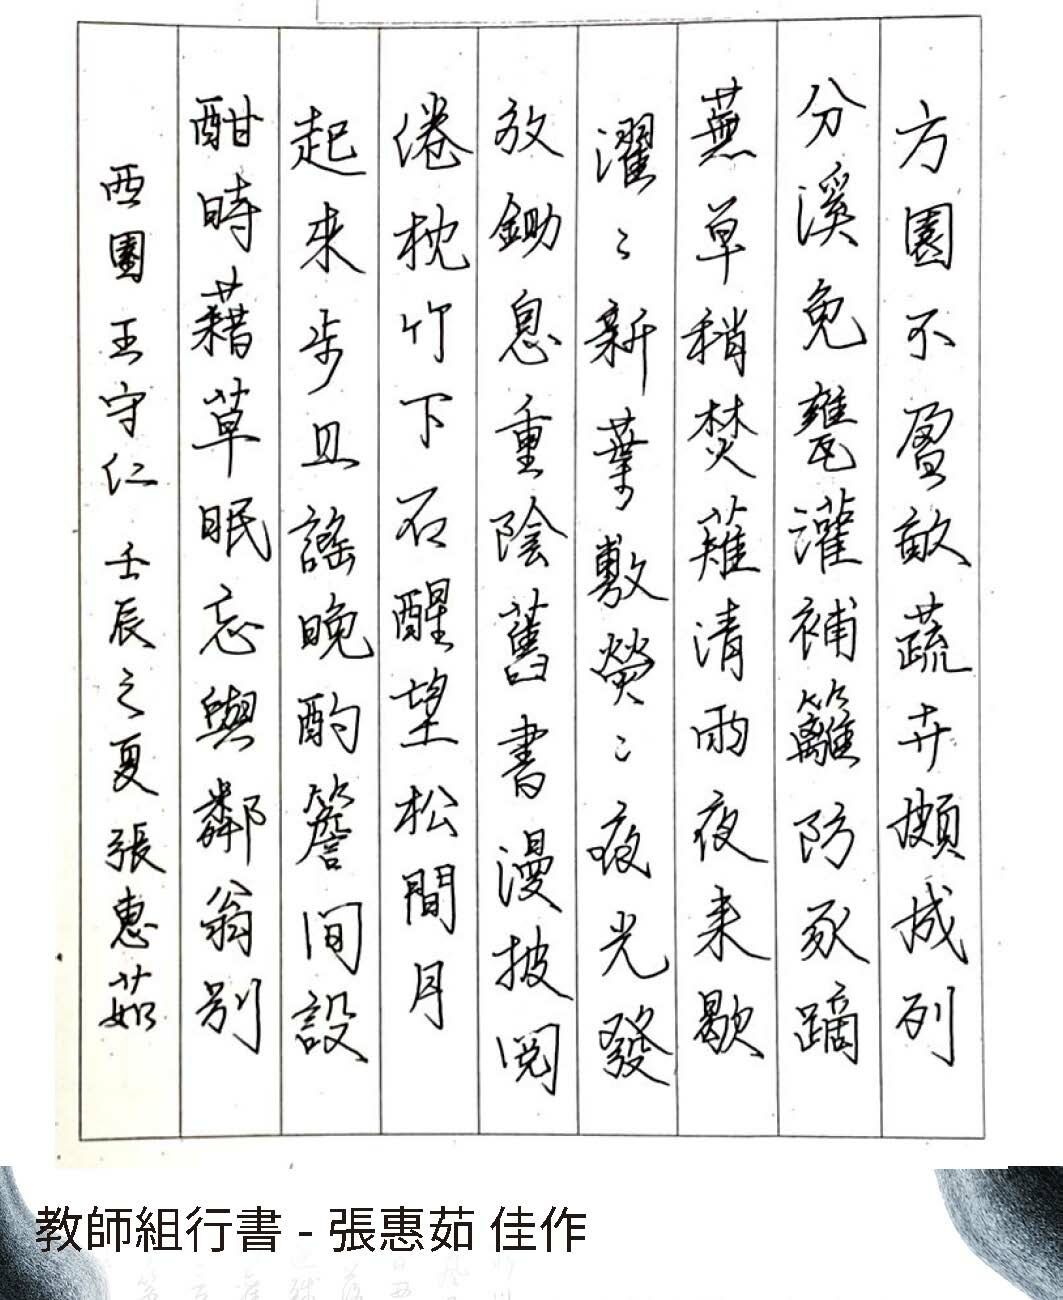 方園不盈畝蔬卉頗成列
分溪免甕灌補籬防豕蹢
蕪草稍焚薙清雨夜来歇
濯〻新葉敷熒〻夜光發
放鋤息重陰舊書漫披閱
倦枕竹下石醒望松間月
起来步且謠晚酌簷间設
酣時藉草眠忘與鄰翁别
西園王守仁 壬辰之夏張惠茹
教師組行書 - 張惠茹 佳作